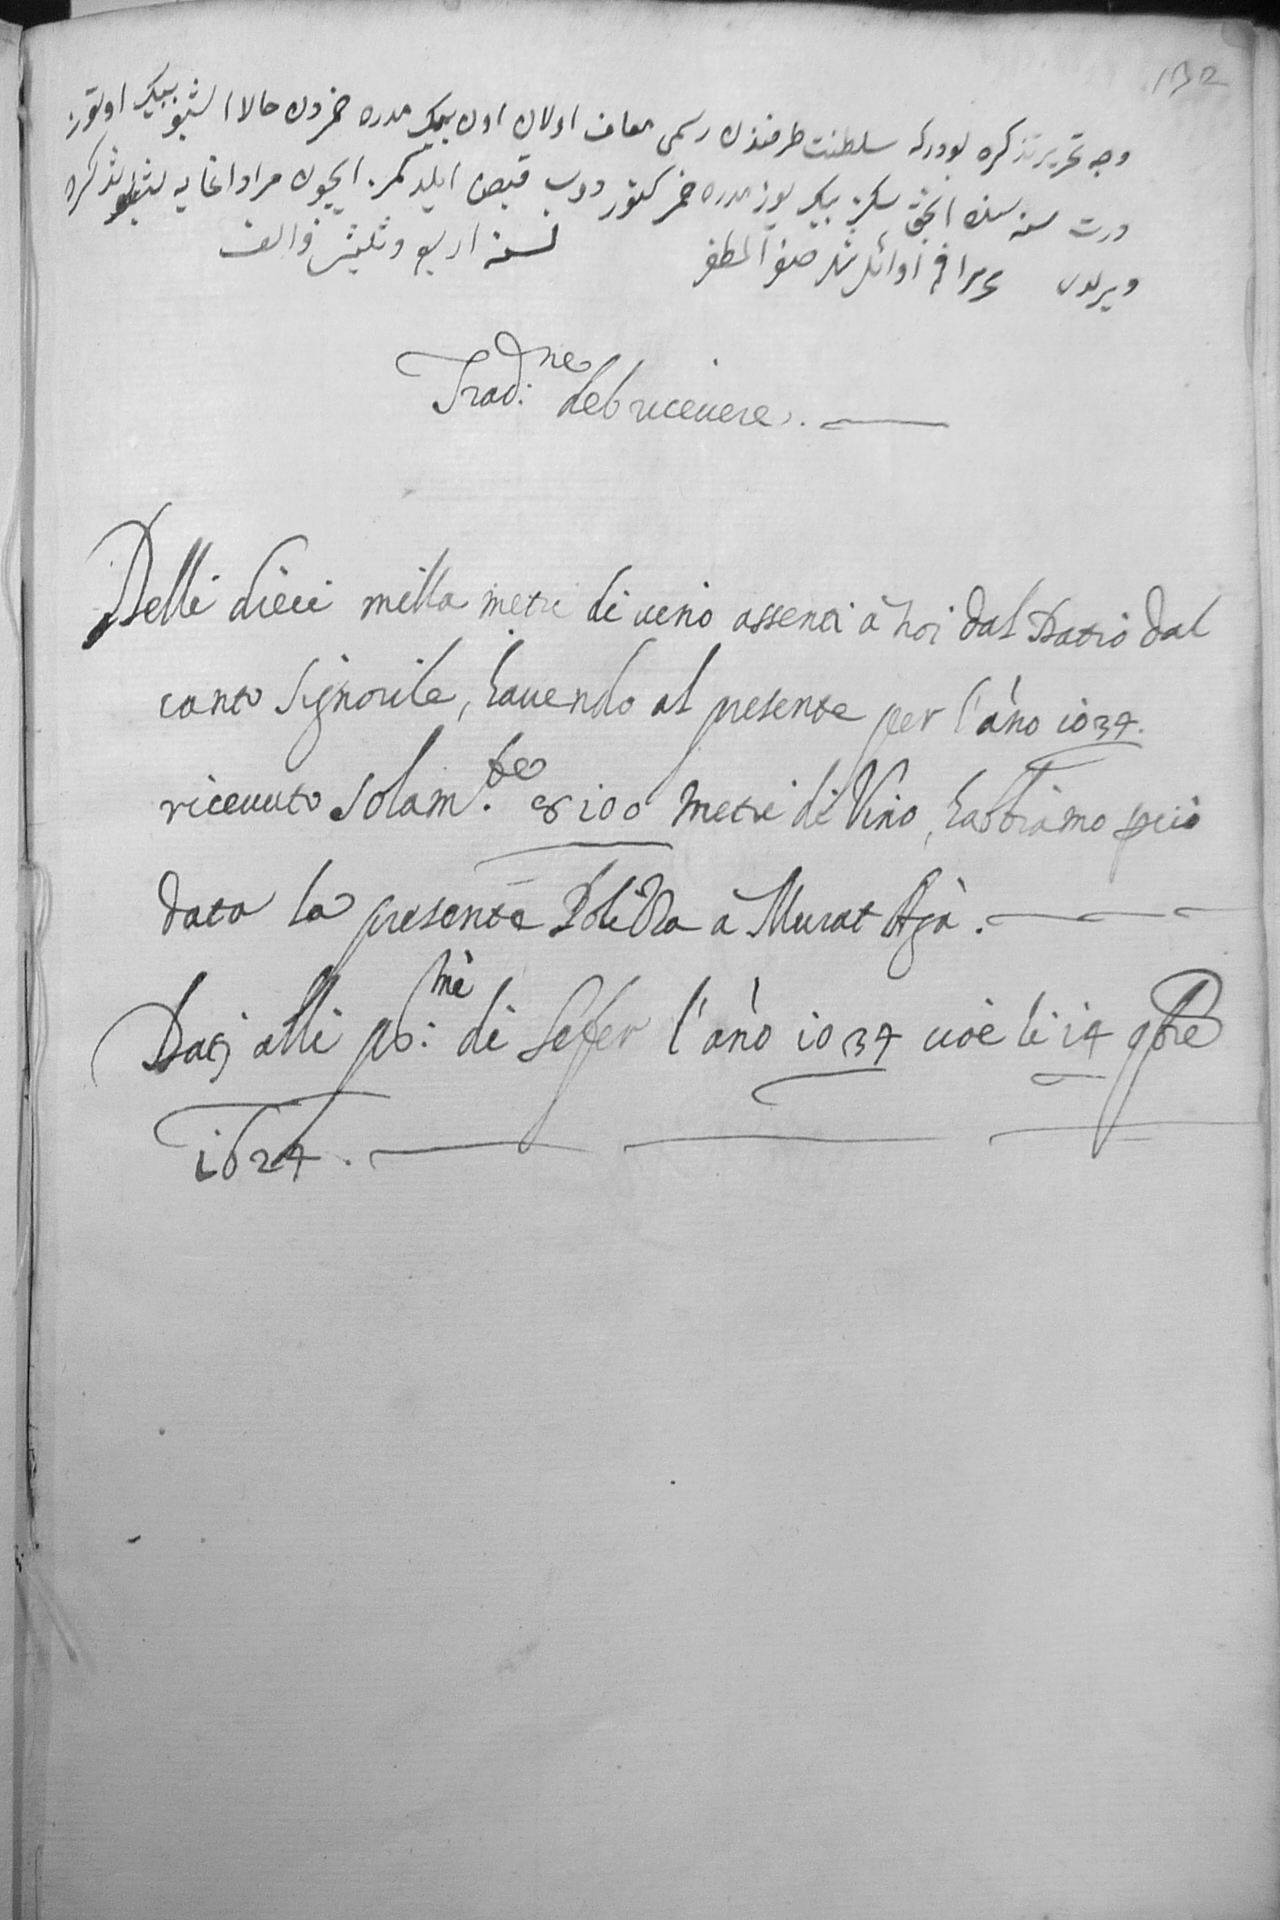 132
وجه تحریر تذکره بودرکه سلطنت طرفندن رسمی معاف اولان اون بیك مدره خمردن حالا اشبو بیك اوتوز
درت سنه سنه انجق سکز بیك یوز مدره خمر کتوردوب قبض ایلدکمز ایچون مراد اغایه اشبو تذکره
ویرلدی تحریرا فی اوائل شهر صفر المظفر لسنه اربع وثلثین والف
Trad.ne del riceuere.
Delli dieci milla metri di uino assenti à noi dal Datio dal
canto Signorile, hauendo al presente per l'ano 1034.
riceuuto solam.te 8100 metri di Vino, habbiamo perciò
dato la presente Poliza à Murat Agà.
Dat alli p.mi di Sefer l'ano 1034 cioè li 14 9bre
1624.